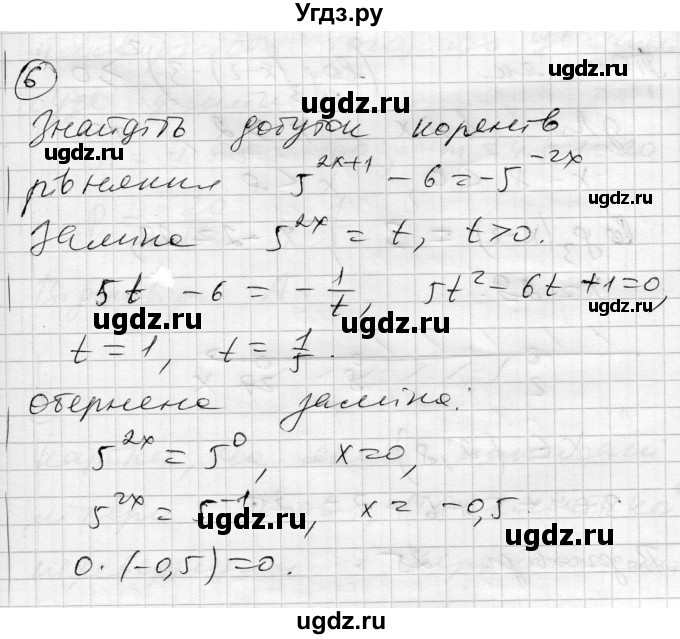 Угдз.ру
6
Знайдіть добуток коренів
рівняння 5^{2x+1} - 6 = -5^{-2x}
Заміна - 5^{2x} = t, t>0.
5t - 6 = -1/t, 5t² - 6t + 1 = 0,
t = 1, t = 1/5.
Обернена заміна:
5^{2x} = 5^0, x=0,
5^{2x} = 5^{-1}, x = -0,5.
0·(-0,5)=0.
ugdz.ru
ugdz.ru
ugdz.ru
ugdz.ru
ugdz.ru
ugdz.ru
ugdz.ru
ugdz.ru
ugdz.ru
ugdz.ru
ugdz.ru
ugdz.ru
ugdz.ru
ugdz.ru